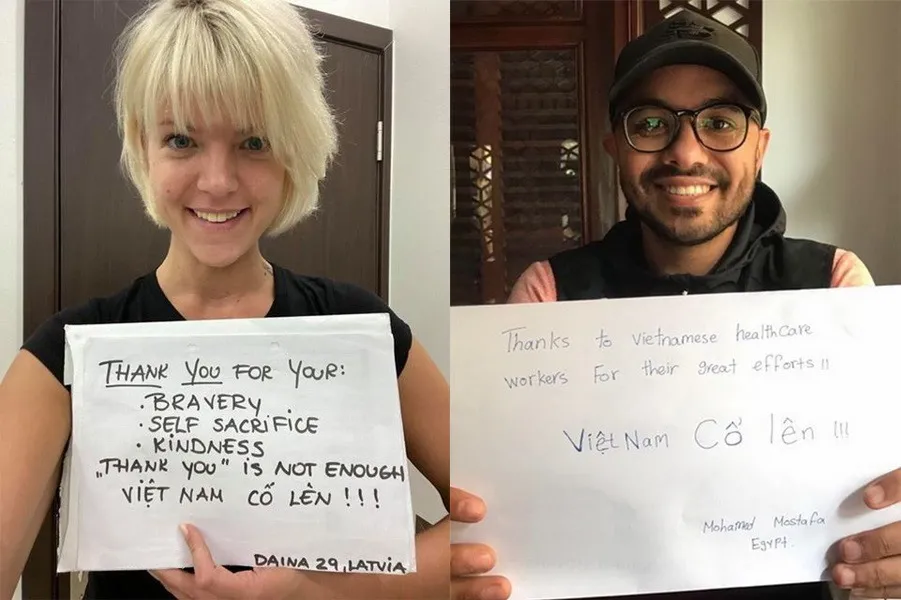 THANK YOU FOR YOUR:
• BRAVERY
• SELF SACRIFICE
• KINDNESS
„THANK YOU” IS NOT ENOUGH
VIỆT NAM CỐ LÊN !!!
DAINA 29, LATVIA
Thanks to vietnamese healthcare
workers For their great efforts !!
Việt Nam Cố lên !!!
Mohamed Mostafa
Egypt.